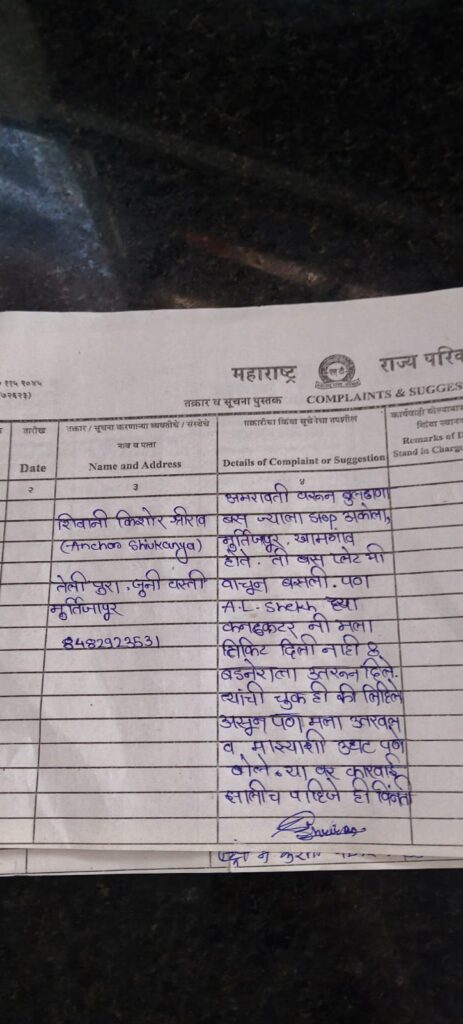 ११५ १०४५
७२६२३)
महाराष्ट्र राज्य परिव
तक्रार व सूचना पुस्तक COMPLAINTS & SUGGES
तारीख
Date
तक्रार / सूचना करणाऱ्या व्यक्तीचे / संस्थेचे
नाव व पत्ता
Name and Address
तक्रारीचा किंवा सूचनेचा तपशील
Details of Complaint or Suggestion
Remarks of D
Stand in Charg
२ ३ ४
शिवानी किशोर श्रीराव
(-Anchor Shivkanya)
तेली पुरा. जुनी वस्ती
मुर्तिजापूर
8482923531
अमरावती वरून बुलढाणा
बस ज्याला स्टॉप अकोला,
मुर्तिजपूर. खामगांव
होते. ती बस प्लेट मी
वाचून बसली. पण
A.L. Shekh ह्या
कनडकटर नी मला
तिकिट दिली नही &
बडनेराला उतरऊन दिले.
त्यांची चुक ही की लिहिले
असून पण मला उतरवल
व माझ्याशी उध्दट पण
बोले. या वर कारवाई
झालीच पाहिजे ही विनंती